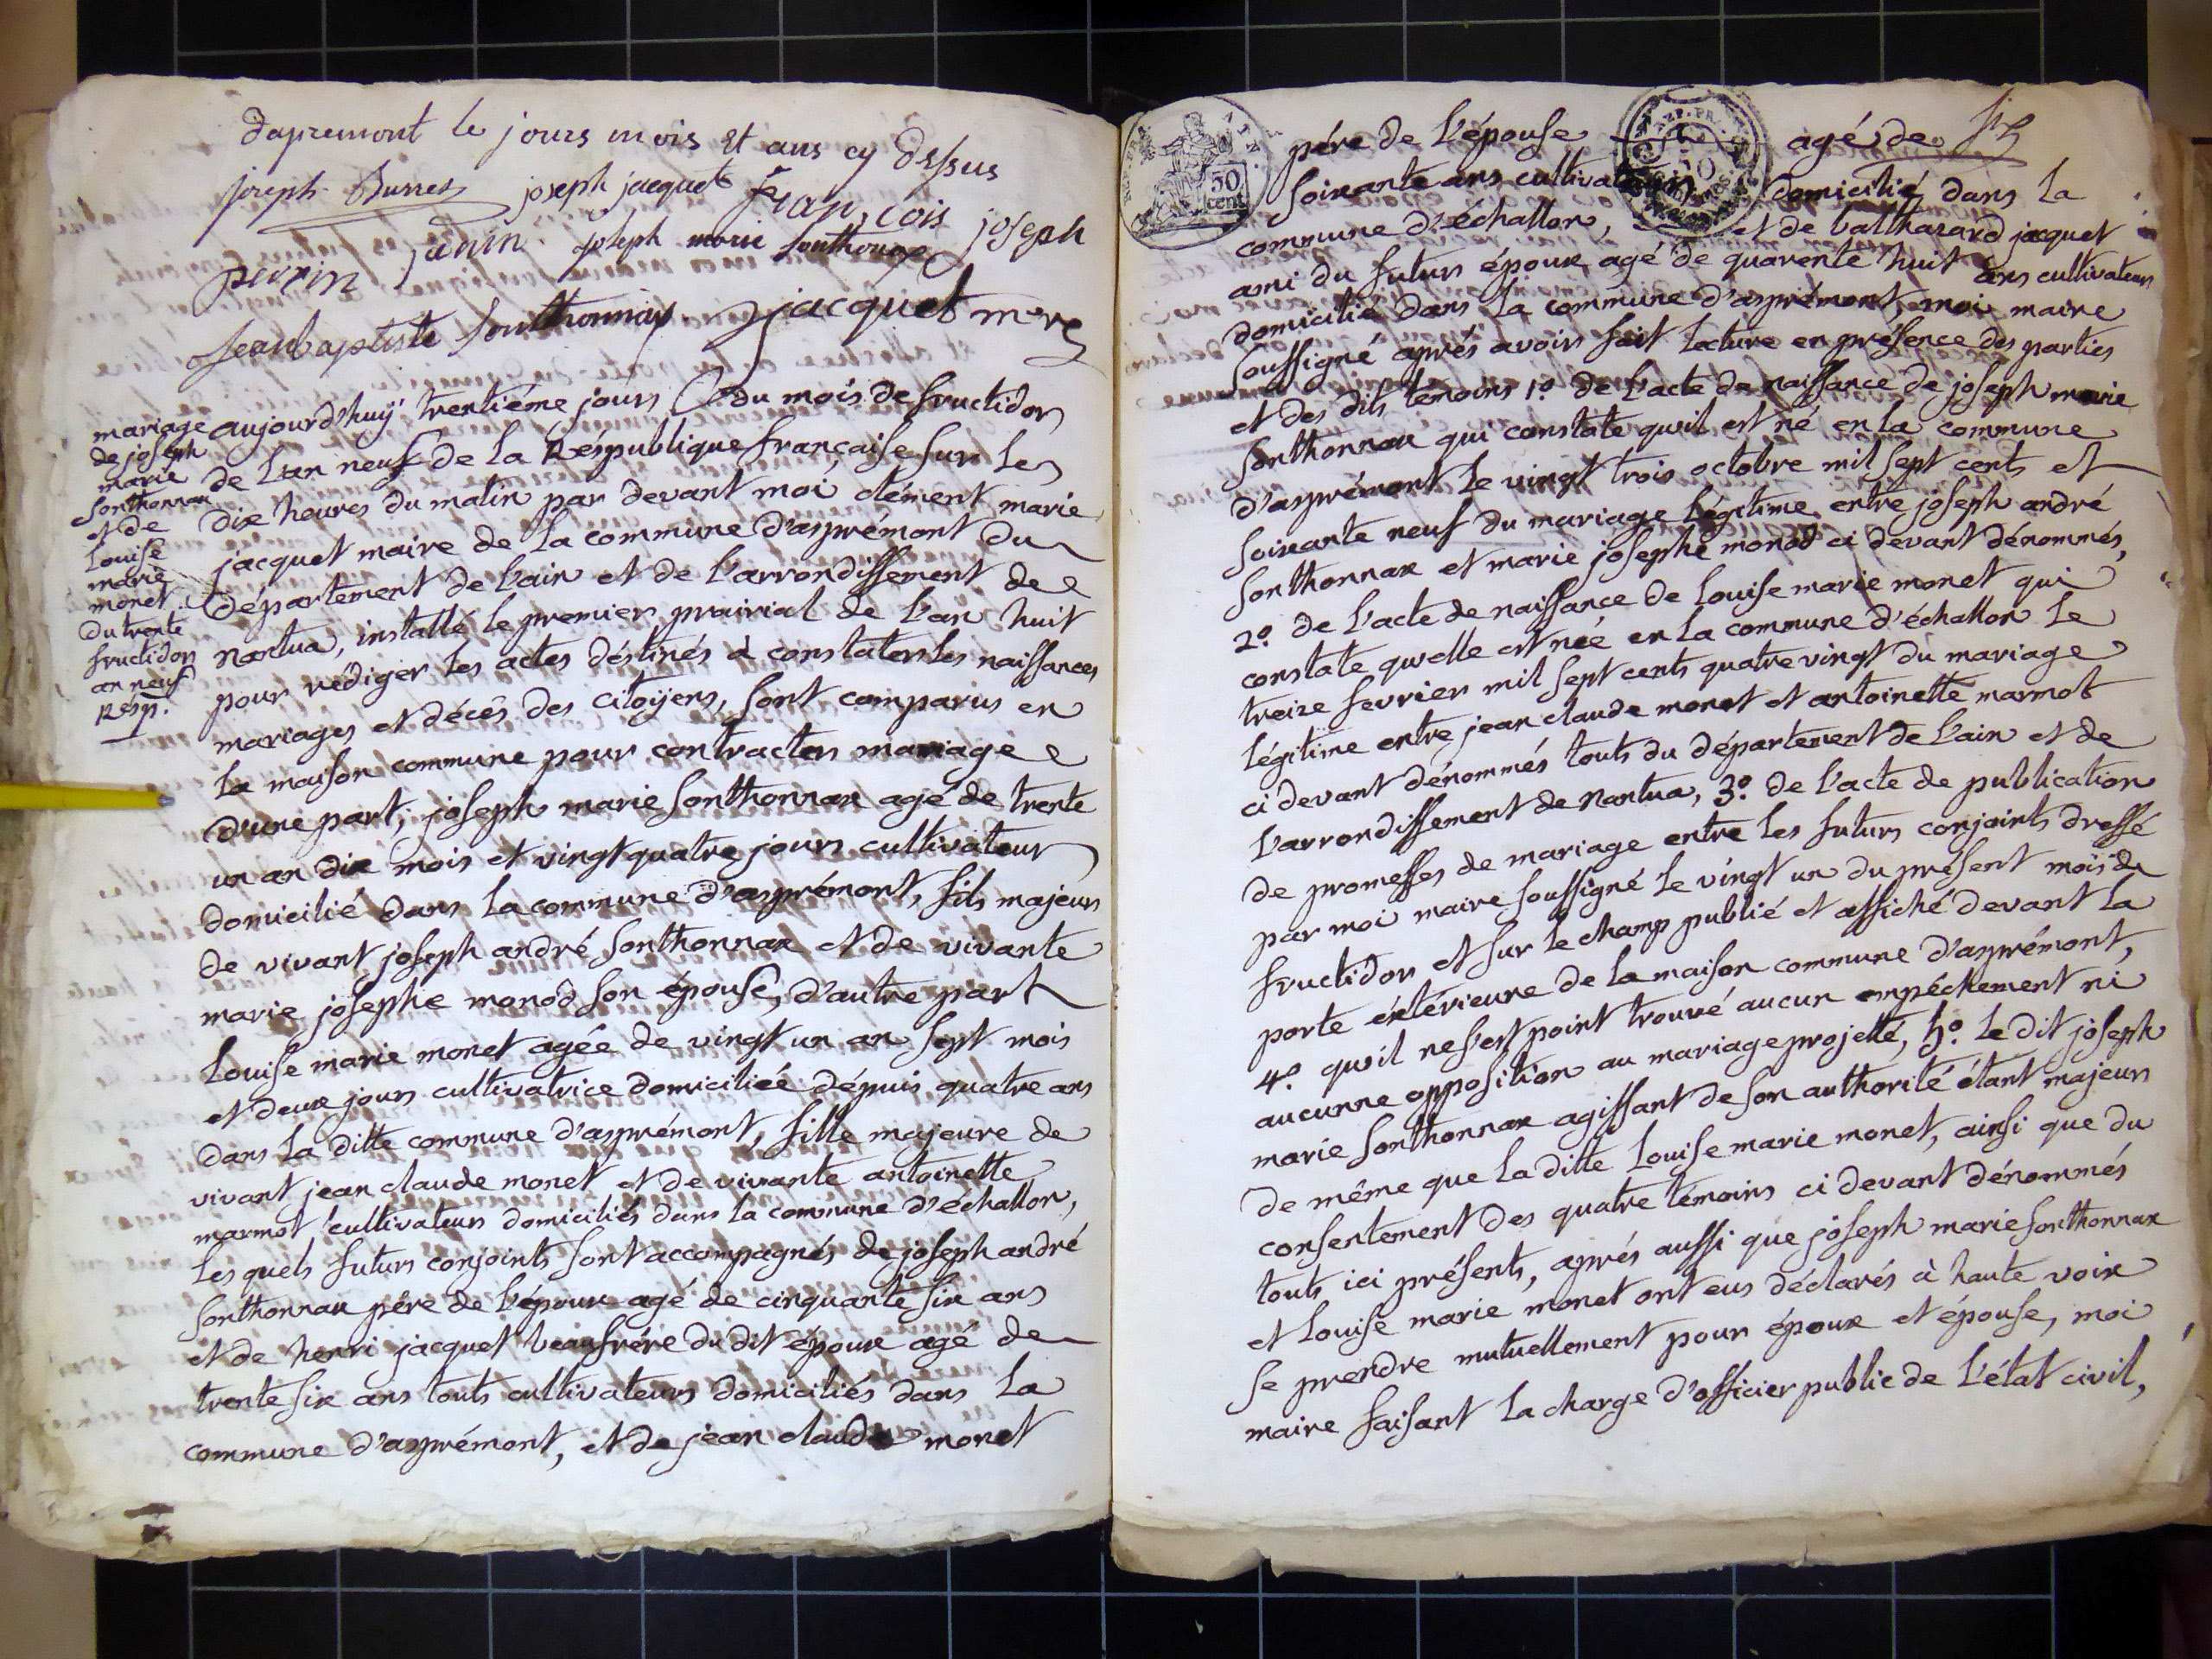 dapremont le jours mois et ans cy dessus
joseph Burres joseph jacquet françois joseph
perrin janin joseph marie sonthonax
jean baptiste sonthonnax jacquet m.re
mariage
de joseph
marie
sonthonnax
et de
louise
marie
monet
du trente
fructidor
an neuf
Resp.
aujourd'huÿ trentiéme jours du mois de fructidor
de l'an neuf de la Réspublique française sur les
dix heures du matin par devant moi clément marie
jacquet maire de la commune d'asprémont du
département de l'ain et de l'arrondissement de
nantua, installé le premier prairial de l'an huit
pour rédiger les actes déstinés à constater les naissances
mariages et décès des citoÿens, sont comparus en
la maison commune pour contracter mariage
d'une part, joseph marie sonthonnax agé de trente
un an dix mois et vingt quatre jours cultivateur
domicilié dans la commune d'asprémont, fils majeur
de vivant joseph andré sonthonnax et de vivante
marie josephe monod son épouse, d'autre part
louise marie monet agée de vingt un an sept mois
et deux jours cultivatrice domiciliée dépuis quatre ans
dans la ditte commune d'asprémont, fille majeure de
vivant jean claude monet et de vivante antoinette
marmot, cultivateurs domiciliés dans la commune d'échallon,
les quels futurs conjoints sont accompagnés de joseph andré
sonthonnax pére de l'époux agé de cinquante six ans
et de henri jacquet beaufrére du dit époux agé de
trente six ans touts cultivateurs domiciliés dans la
commune d'asprémont, et de jean claude monet
50
cent
pére de l'épouse agé de
soixante ans cultivateur domicilié dans la
commune d'échallon, et de balthazard jacquet
ami du futurs époux agé de quarente huit ans cultivateurs
domicilié dans la commune d'asprémont, moi maire
soussigné aprés avoirs fait lecture en présence des parties
et des dits témoins 1.o de l'acte de naissance de joseph marie
sonthonnax qui constate qu'il est né en la commune
d'asprémont le vingt trois octobre mil sept cents et
soixante neuf du mariage légitime entre joseph andré
sonthonnax et marie josephe monod ci devant dénommés,
2.o de l'acte de naissance de louise marie monet qui
constate qu'elle est née en la commune d'échallon le
treize fevrier mil sept cents quatre vingt du mariage
légitime entre jean claude monet et antoinette marmot
ci devant dénommés touts du département de l'ain et de
l'arrondissement de nantua, 3.o de l'acte de publication
de promesses de mariage entre les futurs conjoints dressé
par moi maire soussigné le vingt un du présent mois de
fructidor et sur le champ publié et affiché devant la
porte éxtérieure de la maison commune d'asprémont,
4.o qu'il ne s'est point trouvé aucun empéchement ni
aucunne opposition au mariage projetté, 5.o le dit joseph
marie sonthonnax agissant de son authorité étant majeurs
de même que la ditte louise marie monet, ainsi que du
consentement des quatre témoins ci devant dénommés
touts ici présents, aprés aussi que joseph marie sonthonnax
et louise marie monet ont eus déclarés à haute voix
se prendre mutuellement pour époux et épouse, moi
maire faisant la charge d'officier public de l'état civil,